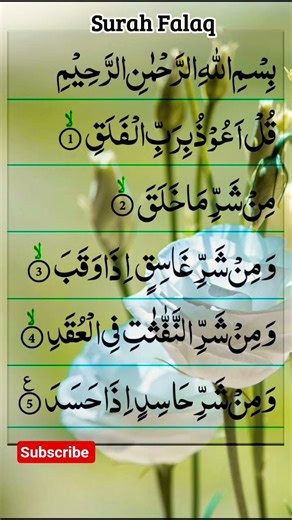 Surah Falaq
بِسْمِ اللهِ الرَّحْمٰنِ الرَّحِيْمِ
قُلْ اَعُوْذُ بِرَبِّ الْفَلَقِ ۙ﴿1﴾
مِنْ شَرِّ مَا خَلَقَ ۙ﴿2﴾
وَمِنْ شَرِّ غَاسِقٍ اِذَا وَقَبَ ۙ﴿3﴾
وَمِنْ شَرِّ النَّفّٰثٰتِ فِى الْعُقَدِ ۙ﴿4﴾
وَمِنْ شَرِّ حَاسِدٍ اِذَا حَسَدَ ﴿5﴾ ع
Subscribe